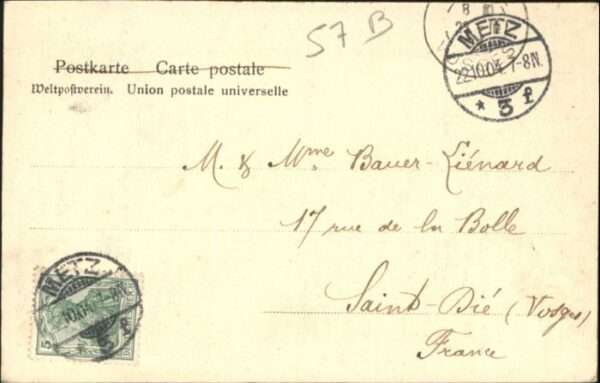 57 B
METZ
22.10.04. 7-8N.
* 3 f
Postkarte Carte postale
Weltpostverein. Union postale universelle
M. & Mme Bauer-Liénard
17 rue de la Bolle
Saint-Dié (Vosges)
France
METZ
5